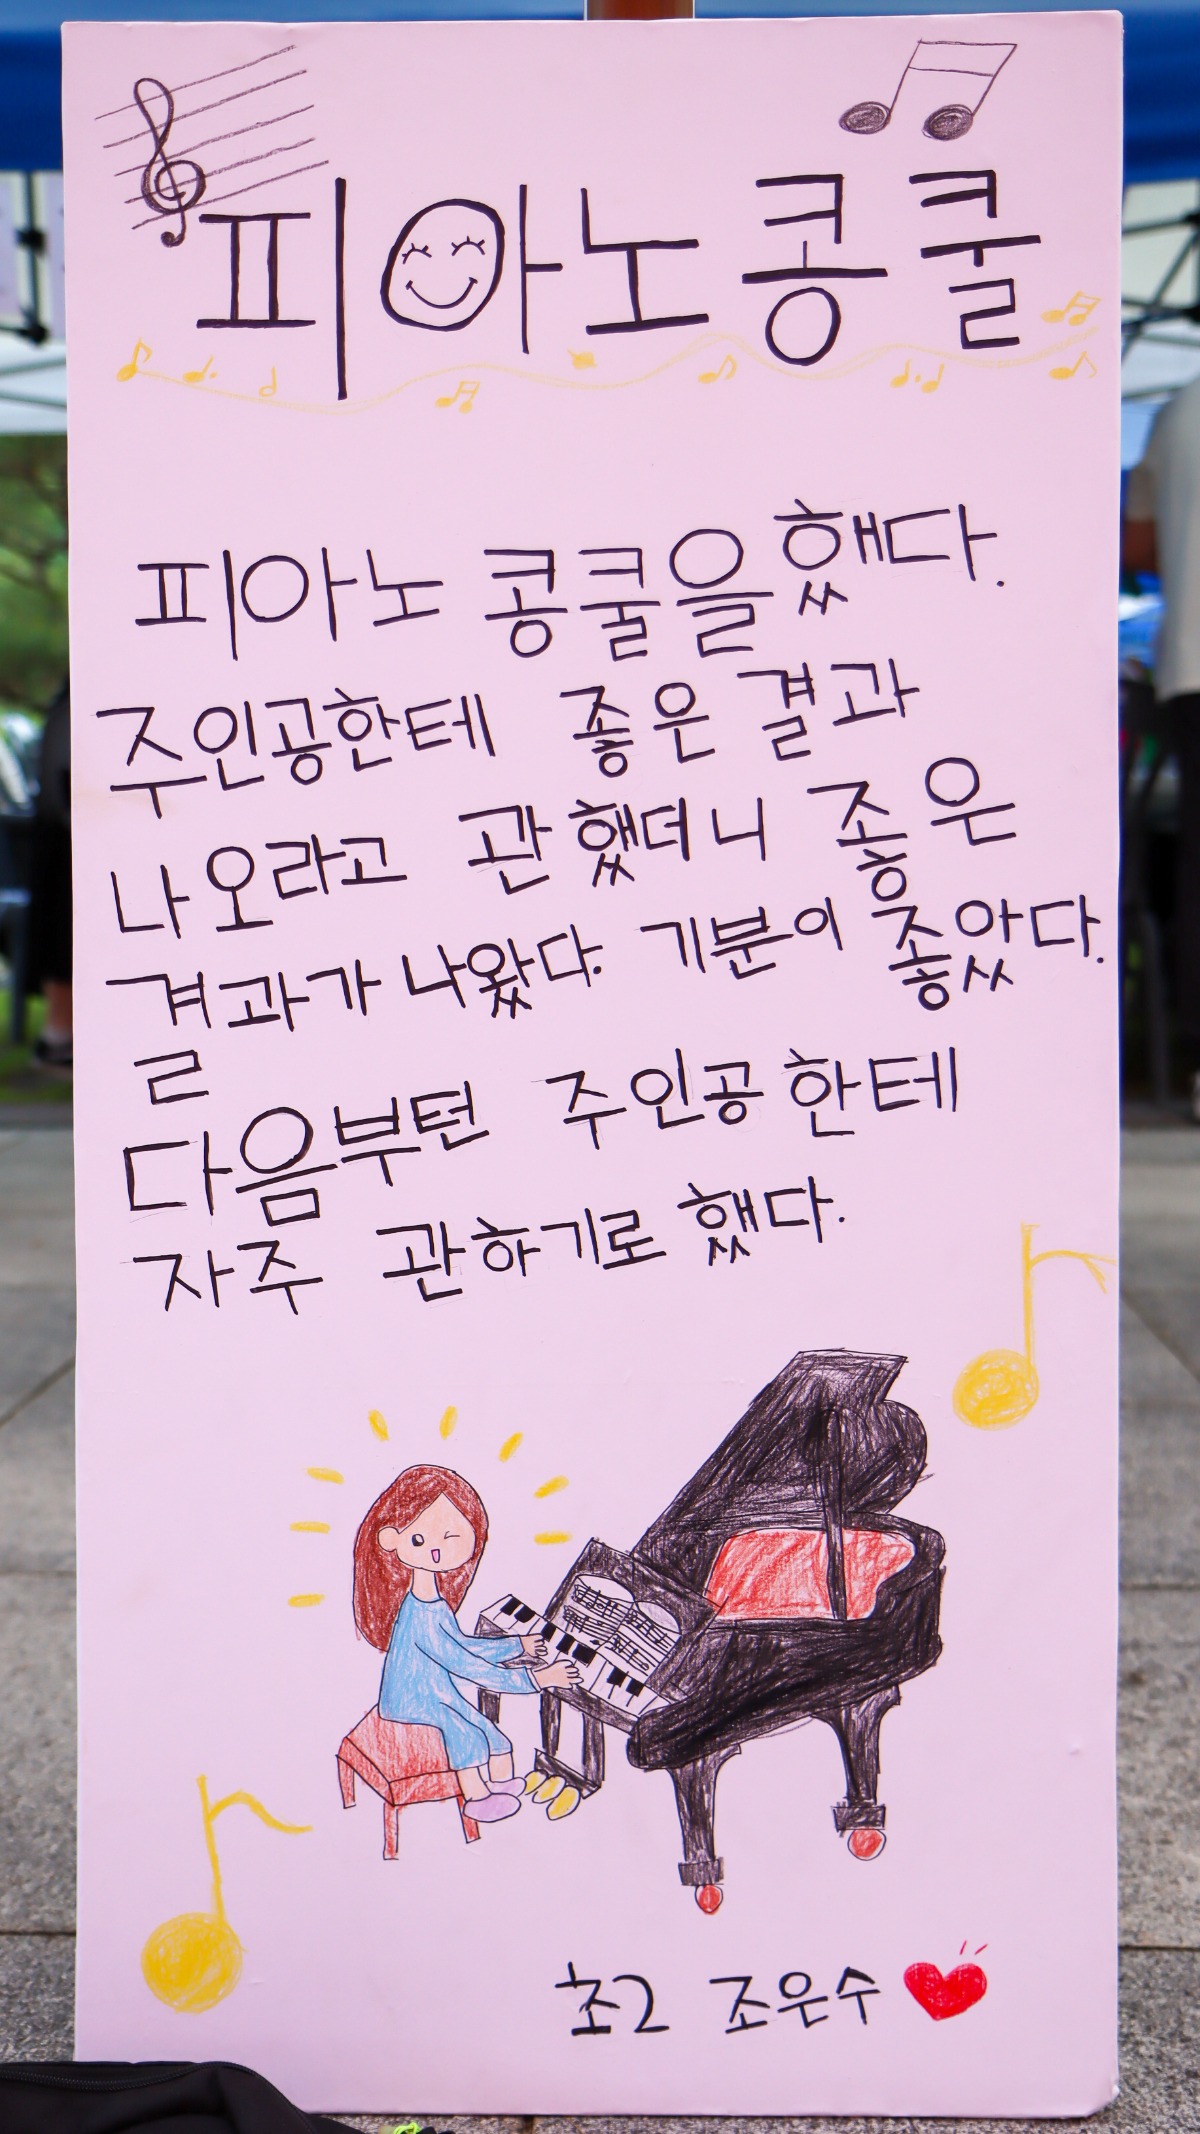 피아노콩쿨
피아노 콩쿨을 했다.
주인공한테 좋은 결과
나오라고 관 했더니 좋은
결과가 나왔다. 기분이 좋았다.
다음부턴 주인공한테
자주 관하기로 했다.
초2 조은수